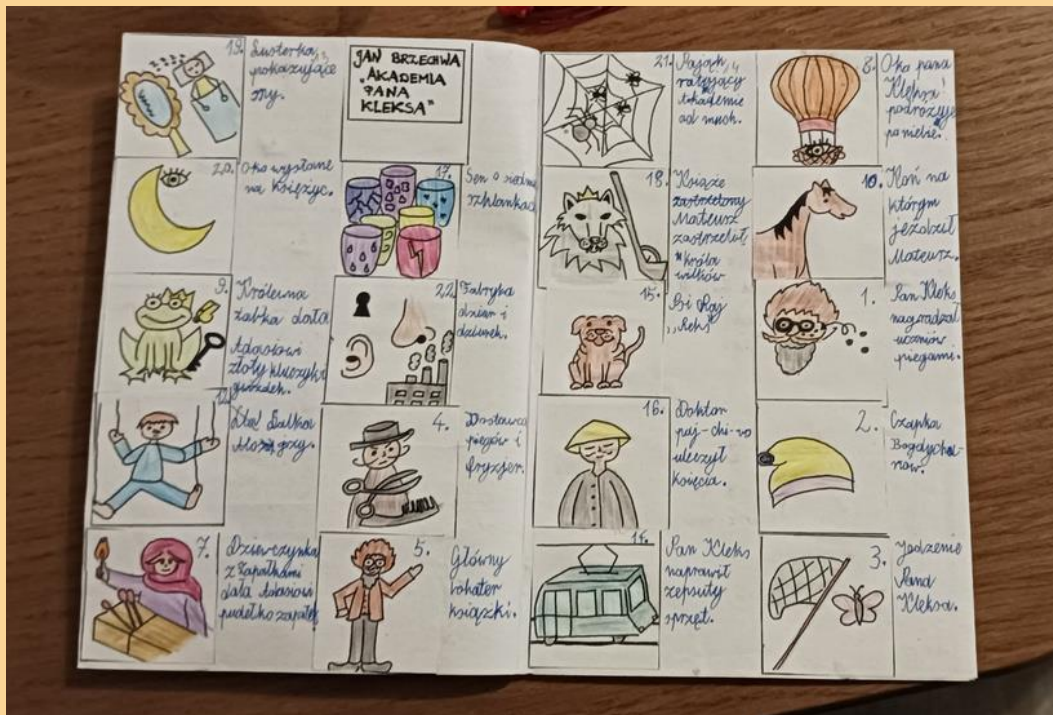 19. Lusterka
pokazujące
sny.
JAN BRZECHWA
„AKADEMIA
PANA
KLEKSA"
20. Oko wysłane
na księżyc.
17. Sen o siedmiu
szklankach
9. Królewna
żabka dała
Adasiowi
złoty kluczyk
22. Fabryka
dziur i
dziurek.
12. Alojzy.
4. Dostawca
piegów i
fryzjer.
7. Dziewczynka
z zapałkami
dała Adasiowi
pudełko zapałek
5. Główny
bohater
książki.
21. Pająk
ratujący
Akademie
od much.
8. Oko pana
Kleksa
podróżuje
po niebie.
18. Książe
Mateusz
zastrzelił
Króla
wilków
10. Koń na
którym
jeździł
Mateusz.
15. Psi Raj
„Reks"
1. Pan Kleks
nagradzał
uczniów
piegami.
16. Doktor
paj-chi-wo
uleczył
Księcia.
2. Czapka
Bogdycha-
nów.
14. Pan Kleks
naprawił
zepsuty
sprzęt.
3. Jedzenie
Pana
Kleksa.